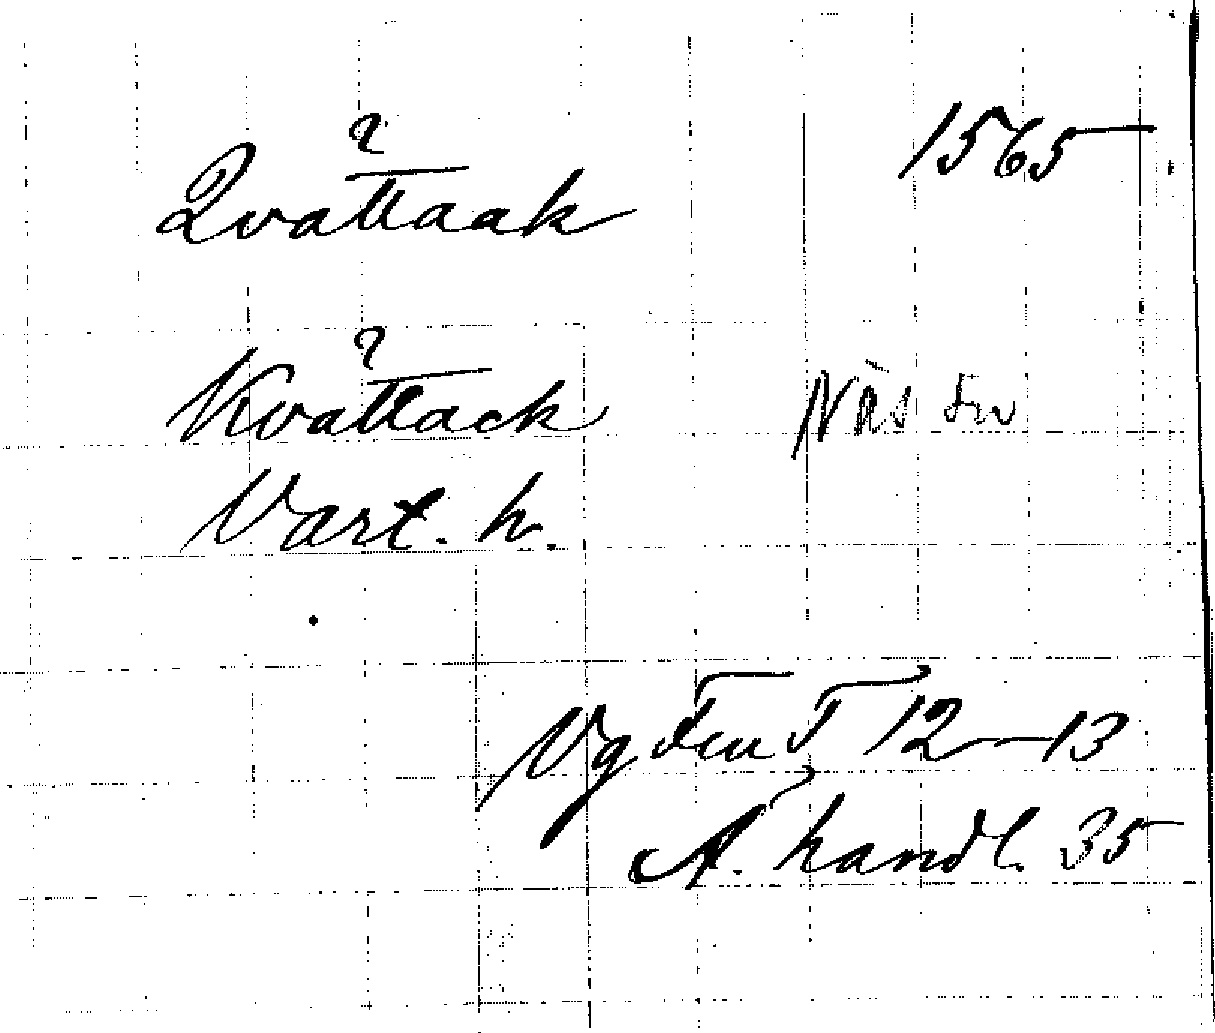 ?
Qvattaak 1565
?
Kvattack Näs sn
Vart. h.
Vg 12-13
A. handl. 35